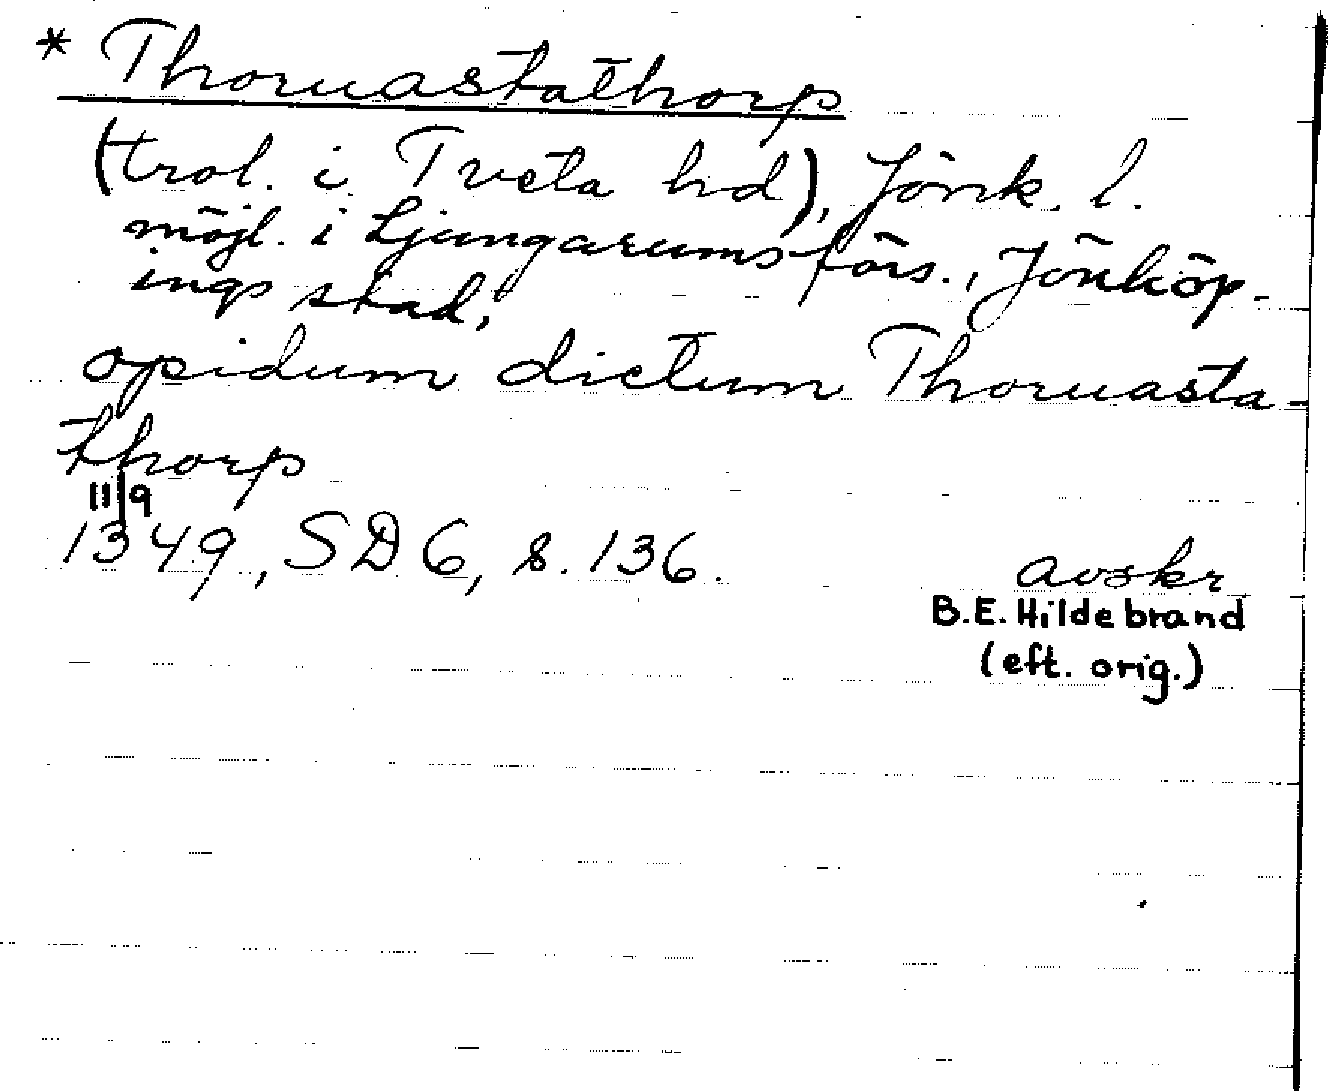 * Thoruastathorp
(trol. i Tveta hd), Jönk. l.
möjl. i Ljungarums förs., Jönköp-
ings stad,
opidum dictum Thoruasta-
thorp
11/9
1349, SD 6, s. 136.
avskr
B.E. Hildebrand
(eft. orig.)